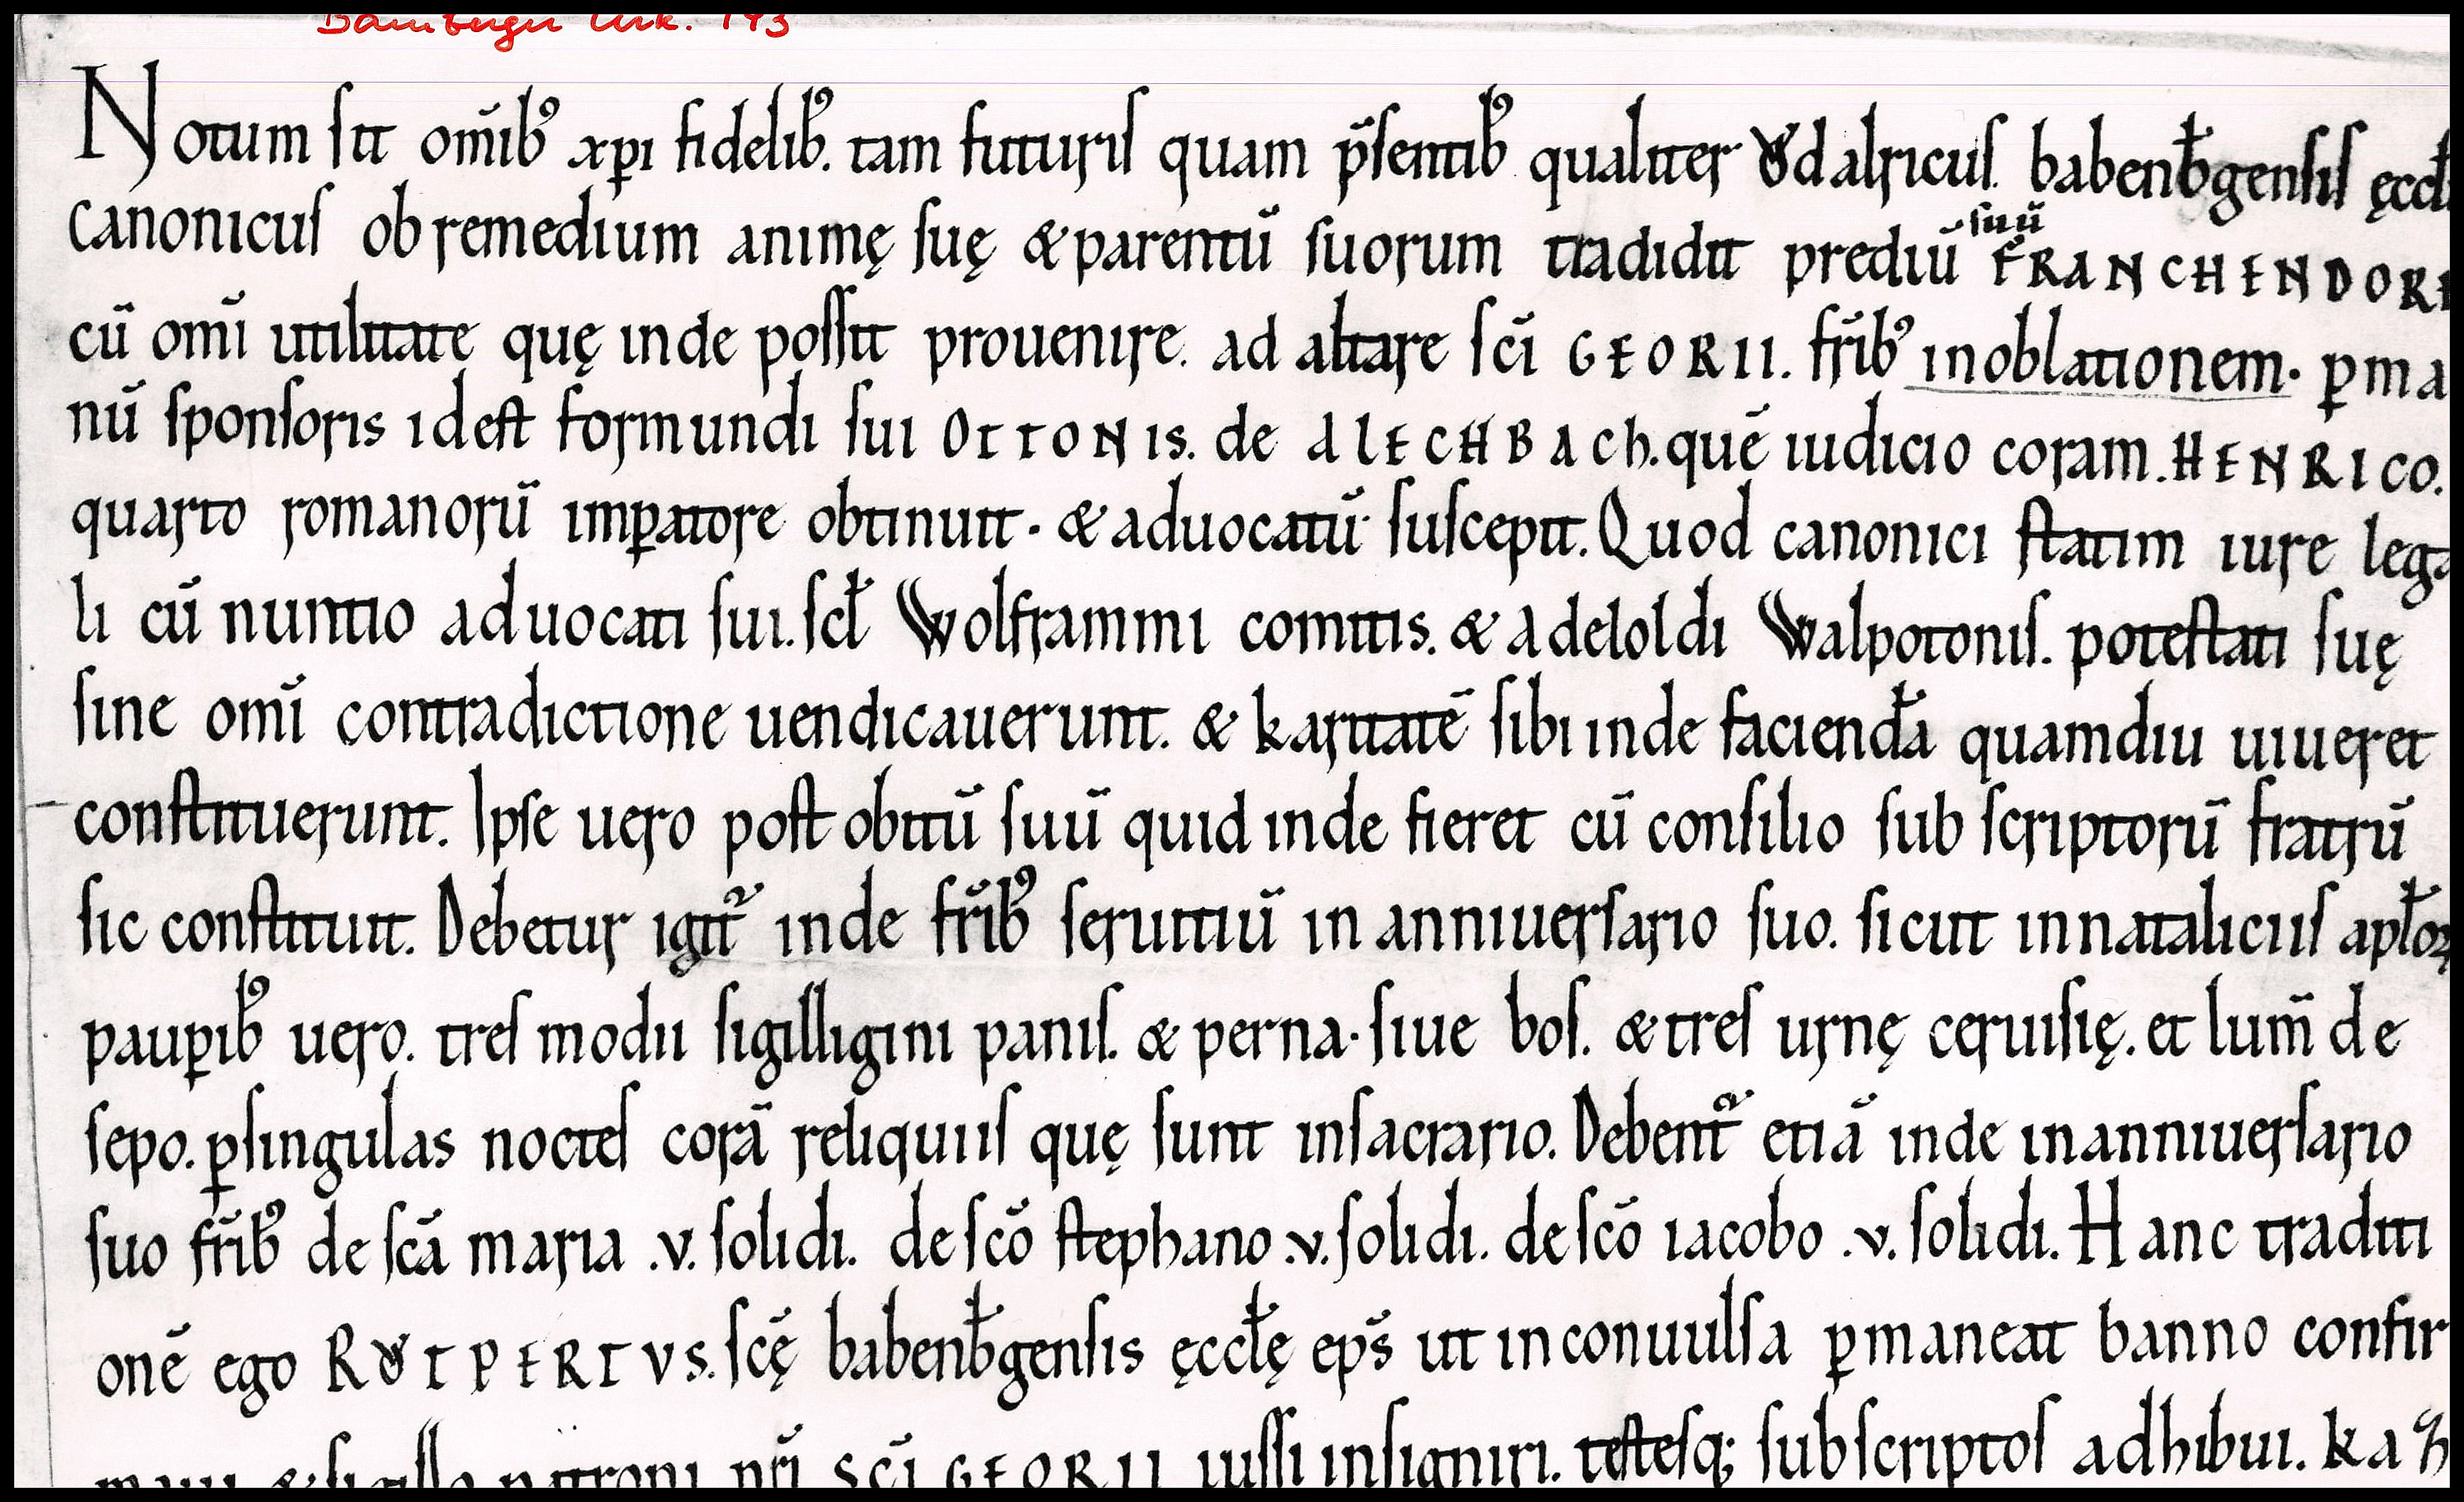 Bamberger Urk. 143
Notum sit om̅ibꝰ xp̅i fidelib̅. tam futuris quam p̅sentib̅ qualiter Ꙋdalricus. babenb̅gensis ęccl̅
canonicus ob remedium animę suę & parentu̅ suorum tradidit prediu̅ suu̅ FRANCHENDORF
cu̅ om̅i utilitate quę inde possit prouenire. ad altare sc̅i GEORII. fr̅ibꝰ in oblationem. ꝑ ma
nu̅ sponsoris id est formundi sui OTTONIS. de ALECHBACh. que̅ iudicio coram. HENRICO.
quarto romanoru̅ imꝑatore obtinuit. & aduocatu̅ suscepit. Quod canonici statim iure lega
li cu̅ nuntio aduocati sui. scl̅ Wolframmi comitis. & adeloldi Walpotonis. potestati suę
sine om̅i contradictione uendicauerunt. & karitate̅ sibi inde faciend̅a quamdiu uiueret
constituerunt. Ipse uero post obitu̅ suu̅ quid inde fieret cu̅ consilio sub scriptoru̅ fratru̅
sic constituit. Debetur igit̅ inde fr̅ibꝰ seruitiu̅ in anniuersario suo. sicut in nataliciis apl̅oꝝ
pauꝑibꝰ uero. tres modii sigilligini panis. & perna. siue bos. & tres urnę ceruisię. et lum̅ de
sepo. ꝑ singulas noctes cora̅ reliquiis quę sunt in sacrario. Debent̅ etia̅ inde in anniuersario
suo fr̅ibꝰ de sc̅a maria .v. solidi. de sc̅o stephano .v. solidi. de sc̅o iacobo .v. solidi. Hanc traditi
one̅ ego RꙊTPERTVS. sc̅ę babenb̅gensis ęccl̅ę ep̅s ut in conuulsa ꝑmaneat banno confir
maui & sigillo patroni nr̅i SC̅I GEORII iussi insigniri. testesq; sub scriptos adhibui. ka